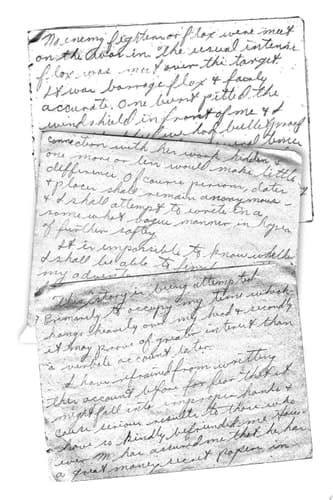 No enemy fighters or flax were meet
on the in the usual intense
flax was meet over the target.
It was barrage flax & fairly
accurate. One burst pitted the
windshield in front of me & I
had bullet proof
connection with her work hidden &
one more or less would make little
difference. Of course persons, dates
& places shall remain anonymous
& I shall attempt to write in a
some what vague manner in hopes
of further safty.
It is impossible to know whether
I shall be able to
my adventures
This story is being attempted
Primarily to occupy my time which
hangs heavily on my head & secondly
it may prove of greater interest than
a verbate account later.
I have refrained from writting
this account before for fear that it
might fall into improper hands &
cause serious results to those who
have so kindly befriended me. How-
ever M. has assured me that he has
a great many secret papers in